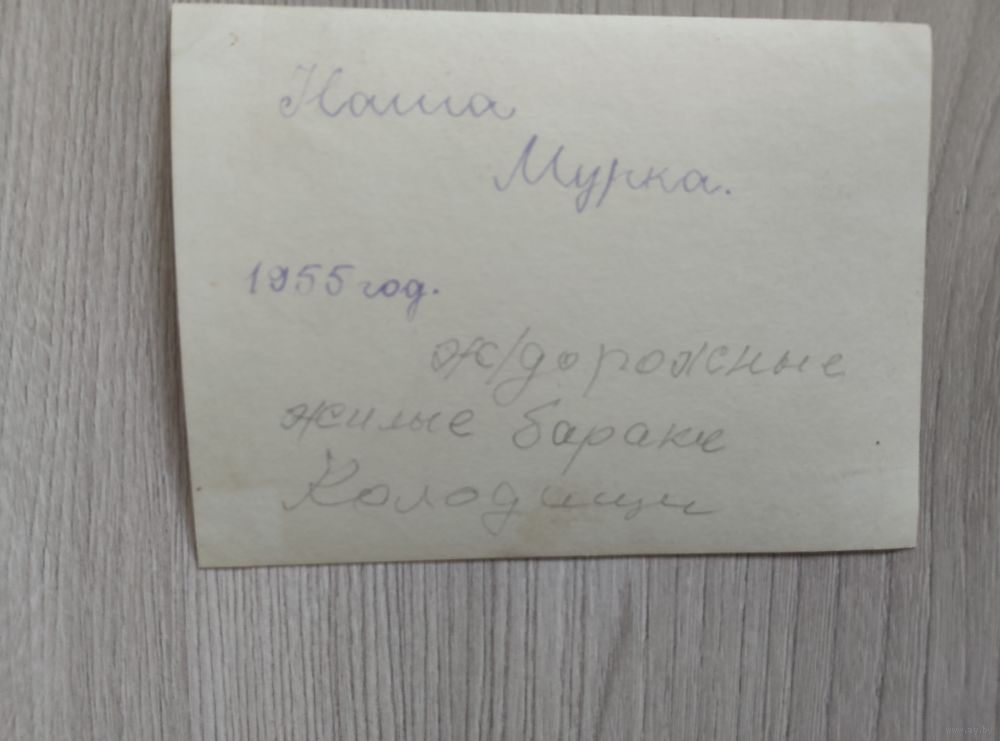 Наша
Мурка.
1955 год.
ж/дорожные
жилые бараки
Колодищи
www.ay.by